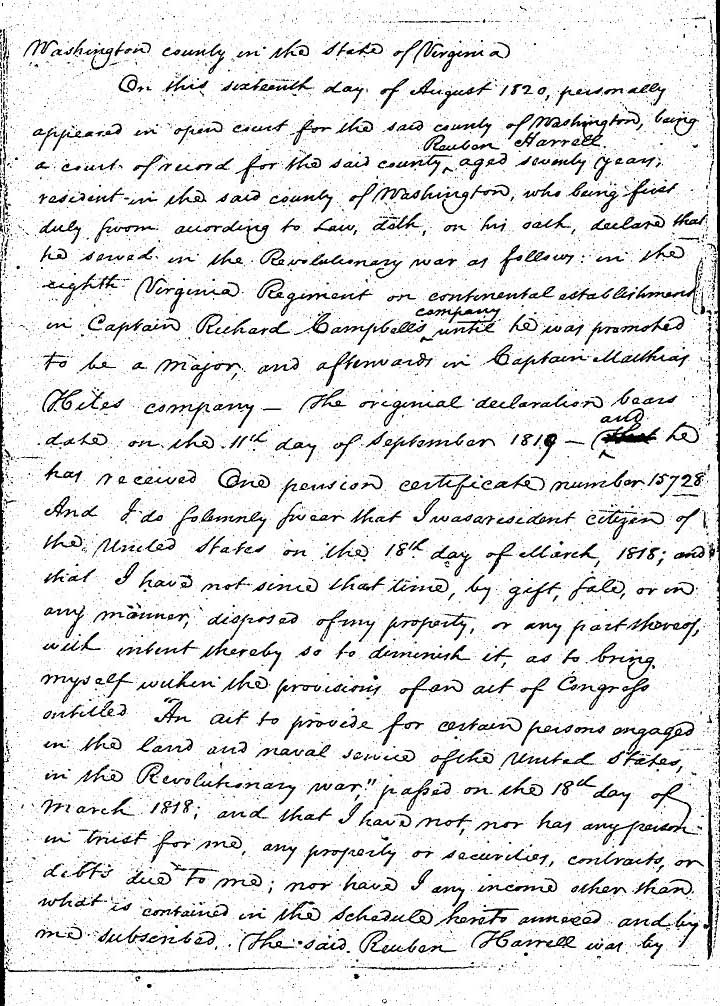 Washington county in the State of Virginia
On this sixteenth day of August 1820, personally
appeared in open court for the said county of Washington, being
Reuben Harrell
a court of record for the said county, aged seventy years,
resident in the said county of Washington, who being first
duly sworn according to Law, doth, on his oath, declare that
he served in the Revolutionary war as follows: in the
eighth Virginia Regiment on continental establishment
company
in Captain Richard Campbells until he was promoted
to be a Major, and afterwards in Captain Mathias
Hites company — The originial declaration bears
and
date on the 11th day of September 1819 — he
has received One pension certificate number 15728
And I do solemnly swear that I was a resident citizen of
the United States on the 18th day of March, 1818; and
that I have not since that time, by gift, sale, or in
any manner, disposed of my property, or any part thereof,
with intent thereby so to diminish it, as to bring
myself within the provisions of an act of Congress
entitled "An act to provide for certain persons engaged
in the land and naval service of the United States,
in the Revolutionary war," passed on the 18th day of
March 1818; and that I have not, nor has any person
in trust for me, any property or securities, contracts, or
debts due to me; nor have I any income other than
what is contained in the schedule hereto annexed and by
me subscribed. The said Reuben Harrell was by